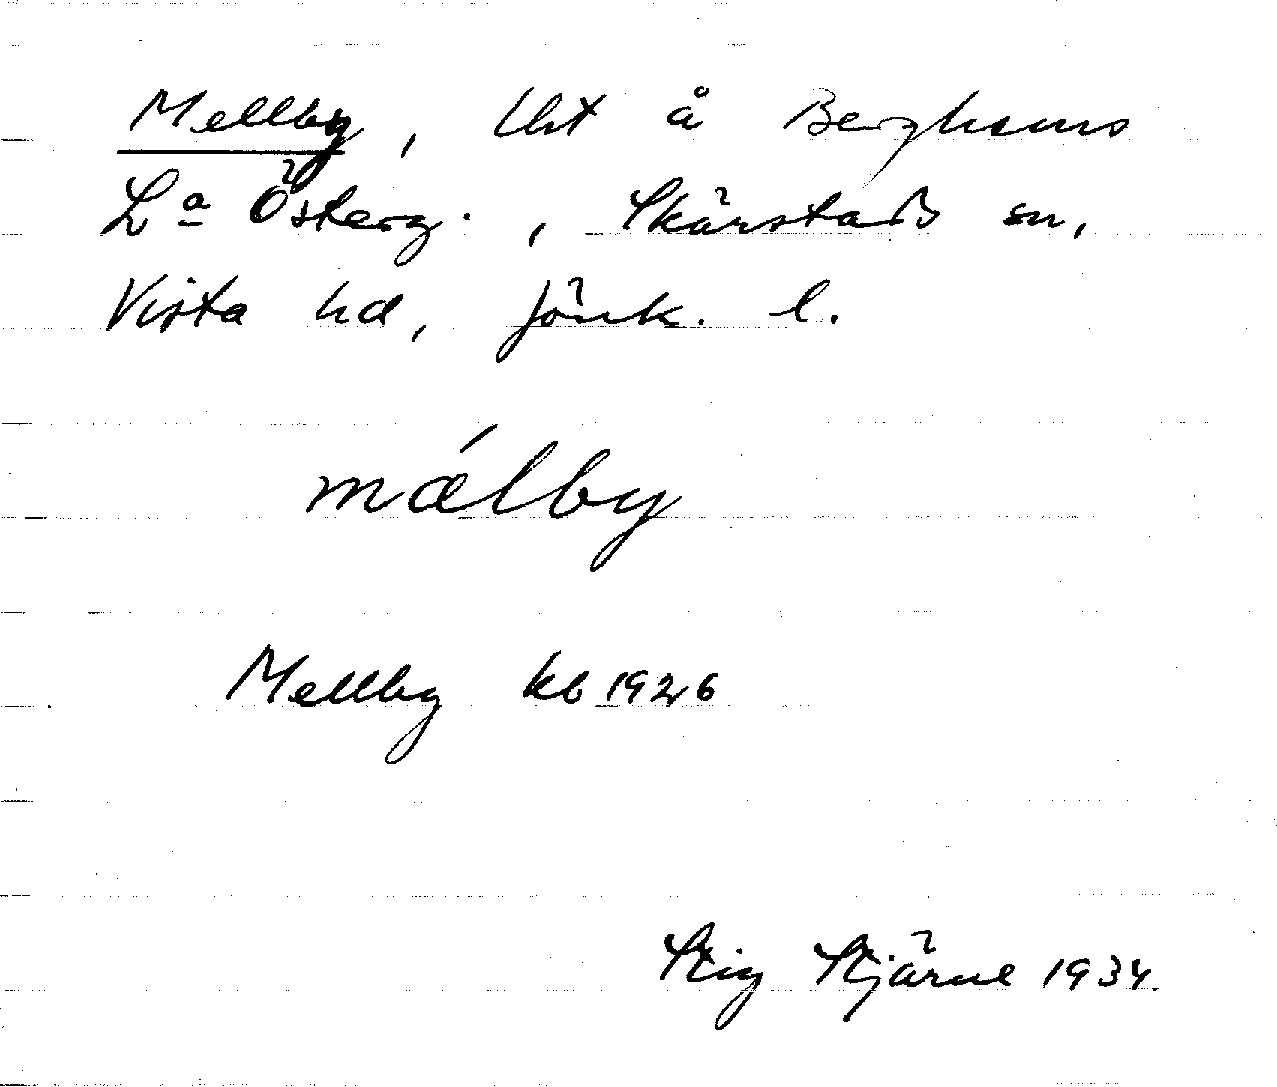 Mellby, lht å Berghems
La Österg., Skärstads sn,
Vista hd, Jönk. l.
mǽlby
Mellby kb 1926
Stig Stjärne 1934.